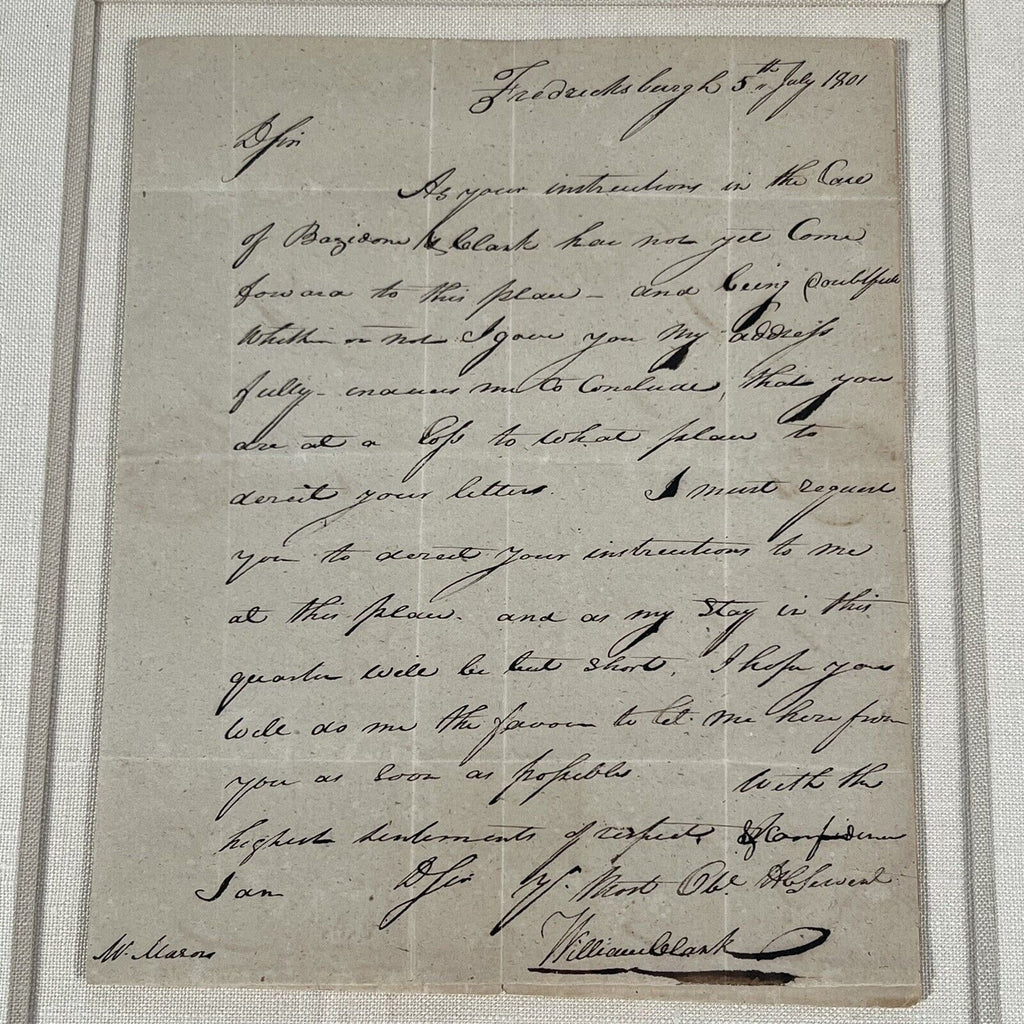 Fredricksburgh 5th July 1801
D Sir
As your instructions in the Case
of Bazidone Vs Clark has not yet Come
forward to this place - and being doubtfull
Whether or not I gave you my address
fully - induces me to Conclude, that you
are at a loss to what place to
derect your letters. I must request
you to derect your instructions to me
at this place. and as my Stay in this
quarter will be but short, I hope you
will do me the favour to let me here from
you as soon as possible. With the
highest sentements of respect & Confidence
I am D Sir Yr. Most Obt. Hble Servent
William Clark
Mr. Marons